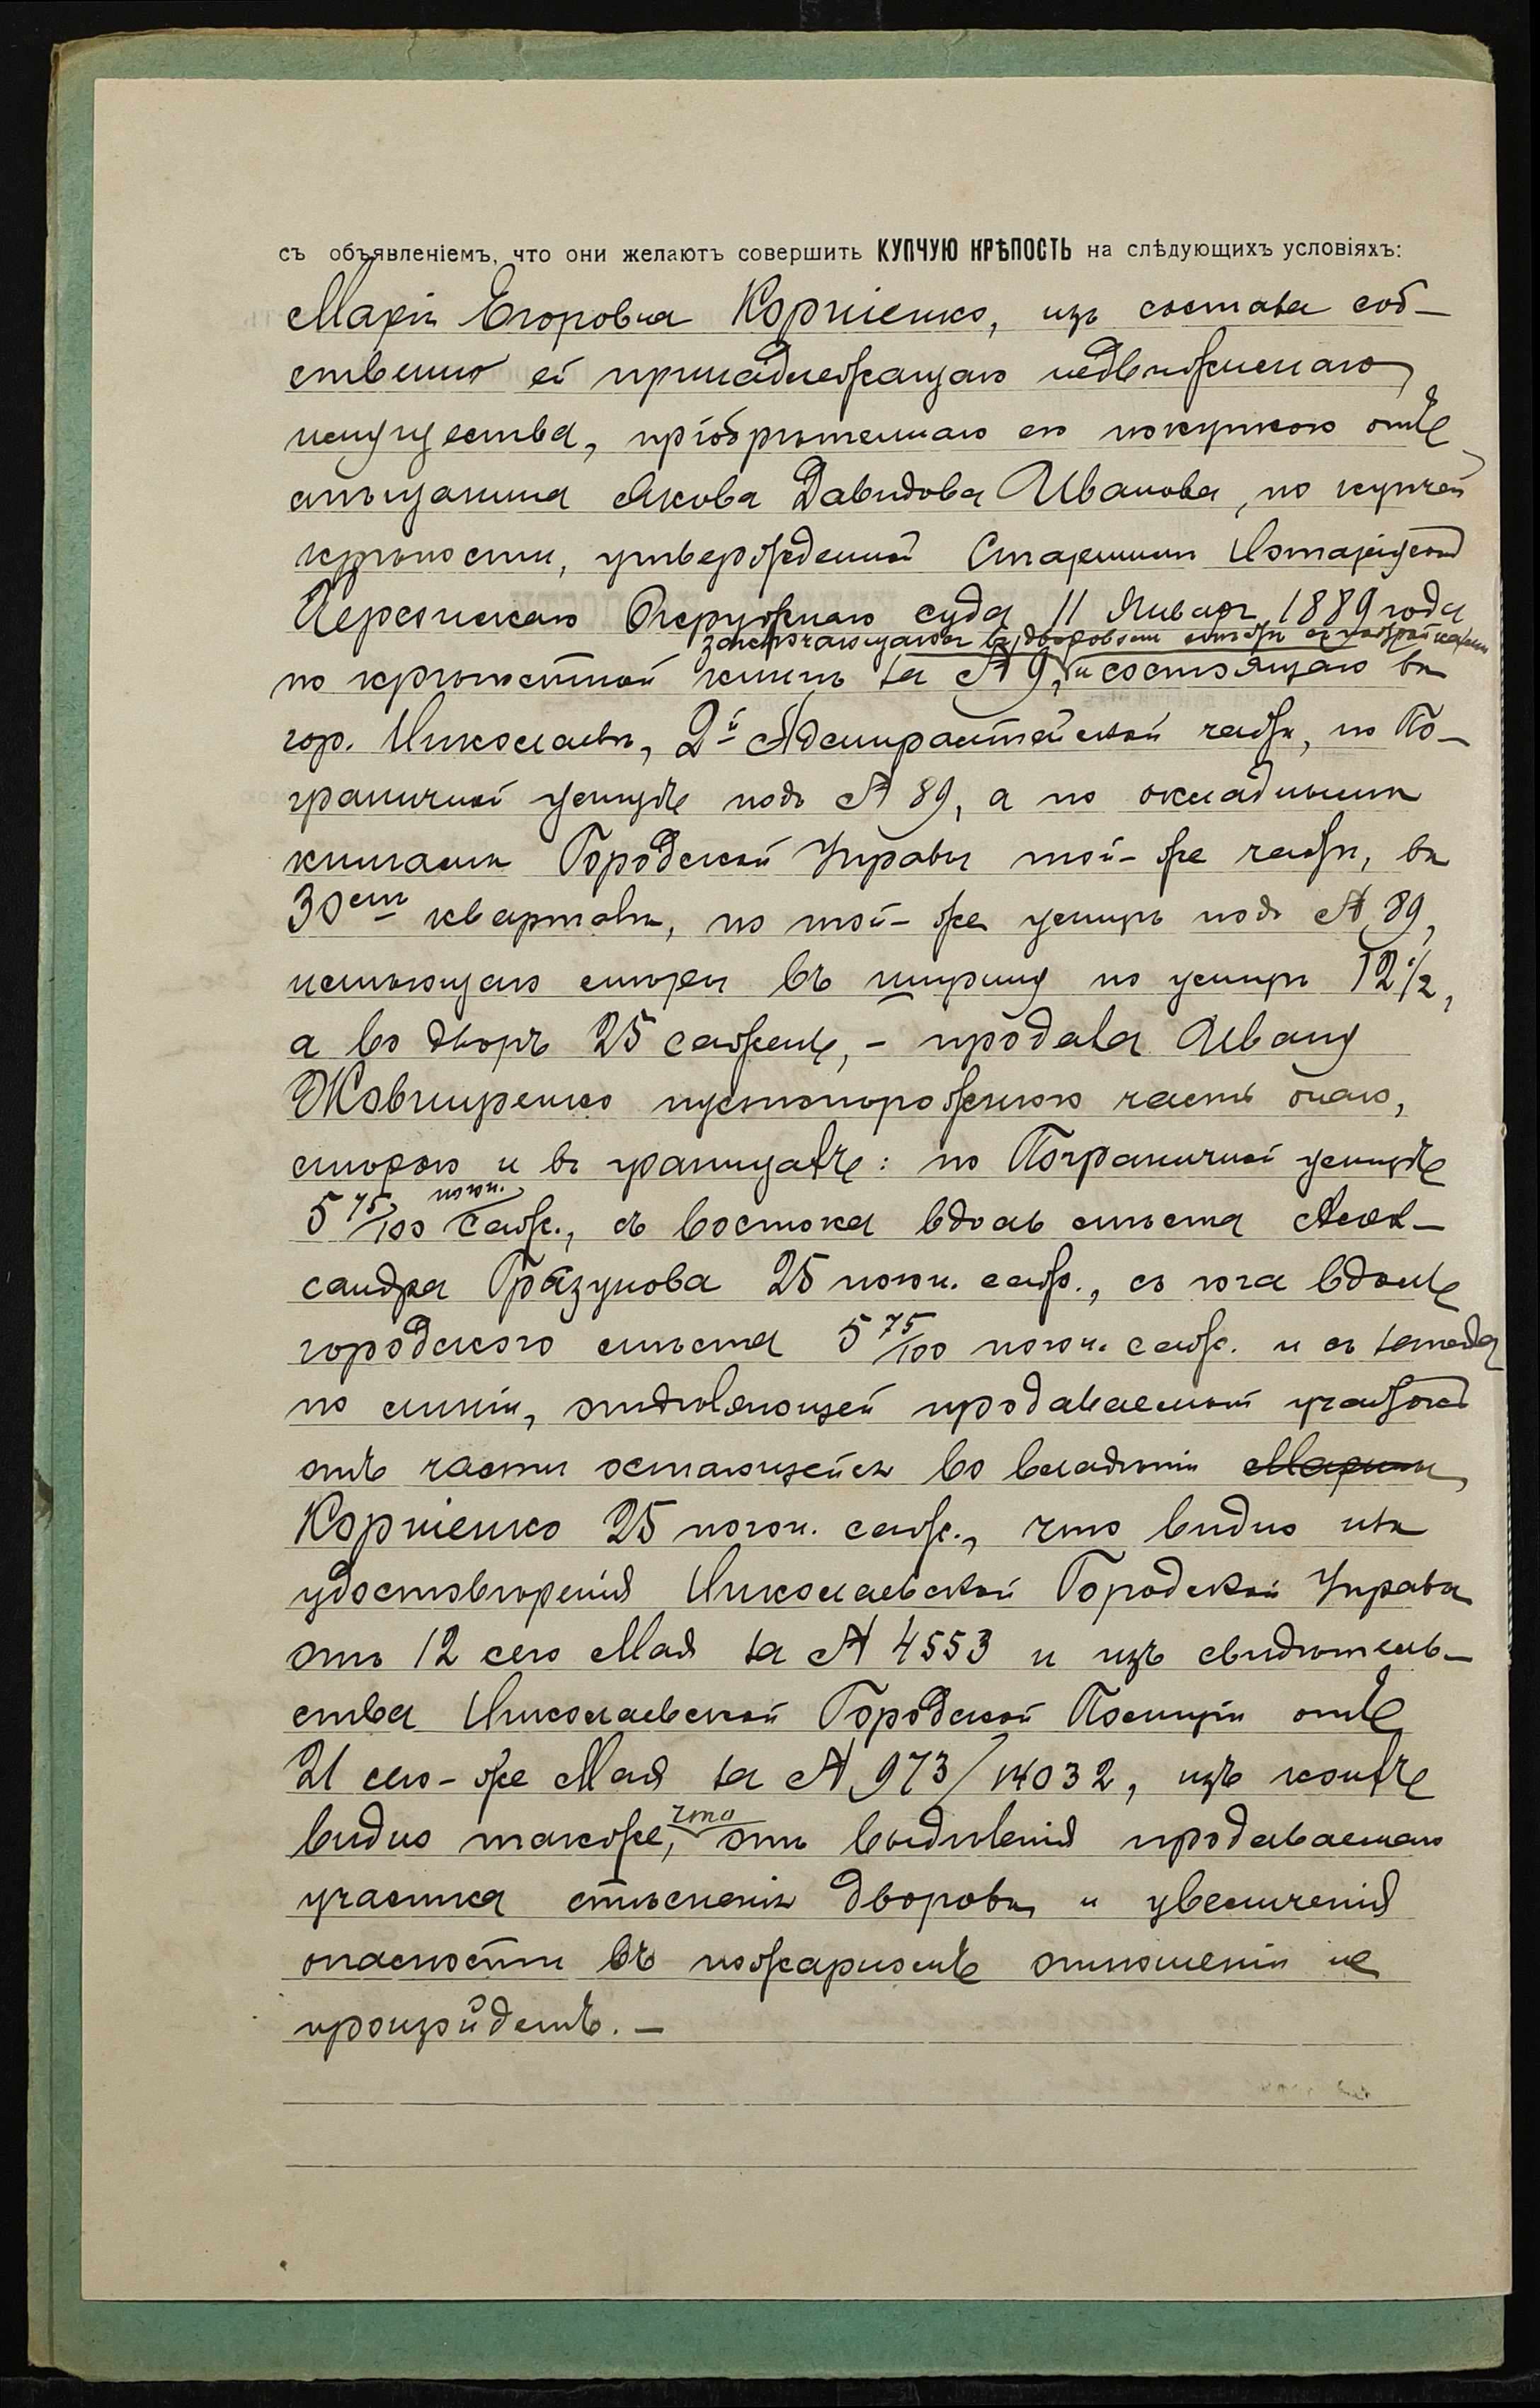 съ объявленіемъ, что они желаютъ совершить КУПЧУЮ КРѢПОСТЬ на слѣдующихъ условіяхъ:
Марія Егоровна Корніенко, изъ состава соб-
ственно ей принадлежащаго недвижимаго
имущества, пріобрѣтеннаго ею покупкою отъ
мѣщанина Якова Давидова Иванова, по купчей
крѣпости, утвержденной Старшимъ Нотаріусомъ
Херсонскаго Окружнаго суда 11 Января 1889 года
заключающагося въ дворовомъ мѣстѣ съ постройками
по крѣпостной книгѣ за № 9, и состоящаго въ
гор. Николаевѣ, 2й Адмиралтейской части, по По-
граничной улицѣ подъ № 89, а по окладнымъ
книгамъ Городской Управы той-же части, въ
30омъ кварталѣ, по той-же улицѣ подъ № 89,
имѣющаго мѣры въ ширину по улицѣ 12 1/2,
а во дворъ 25 саженъ, - продала Ивану
Жовниренко пустопорожнюю часть онаго,
мѣрою и въ границахъ: по Пограничной улицѣ
5 75/100 погон. саж., съ востока вдоль мѣста Алек-
сандра Гразунова 25 погон. саж., съ юга вдоль
городского мѣста 5 75/100 погон. саж. и съ запада
по линіи, отдѣляющей продаваемый участокъ
отъ части остающейся во владѣніи Маріи
Корніенко 25 погон. саж., что видно изъ
удостовѣренія Николаевской Городской Управы
отъ 12 сего Мая за № 4553 и изъ свидѣтель-
ства Николаевской Городской Полиціи отъ
21 сего-же Мая за № 973/14032, изъ коихъ
видно также, что отъ выдѣленія продаваемаго
участка стѣсненія дворовъ и увеличенія
опасности въ пожарномъ отношеніи не
произойдетъ. -